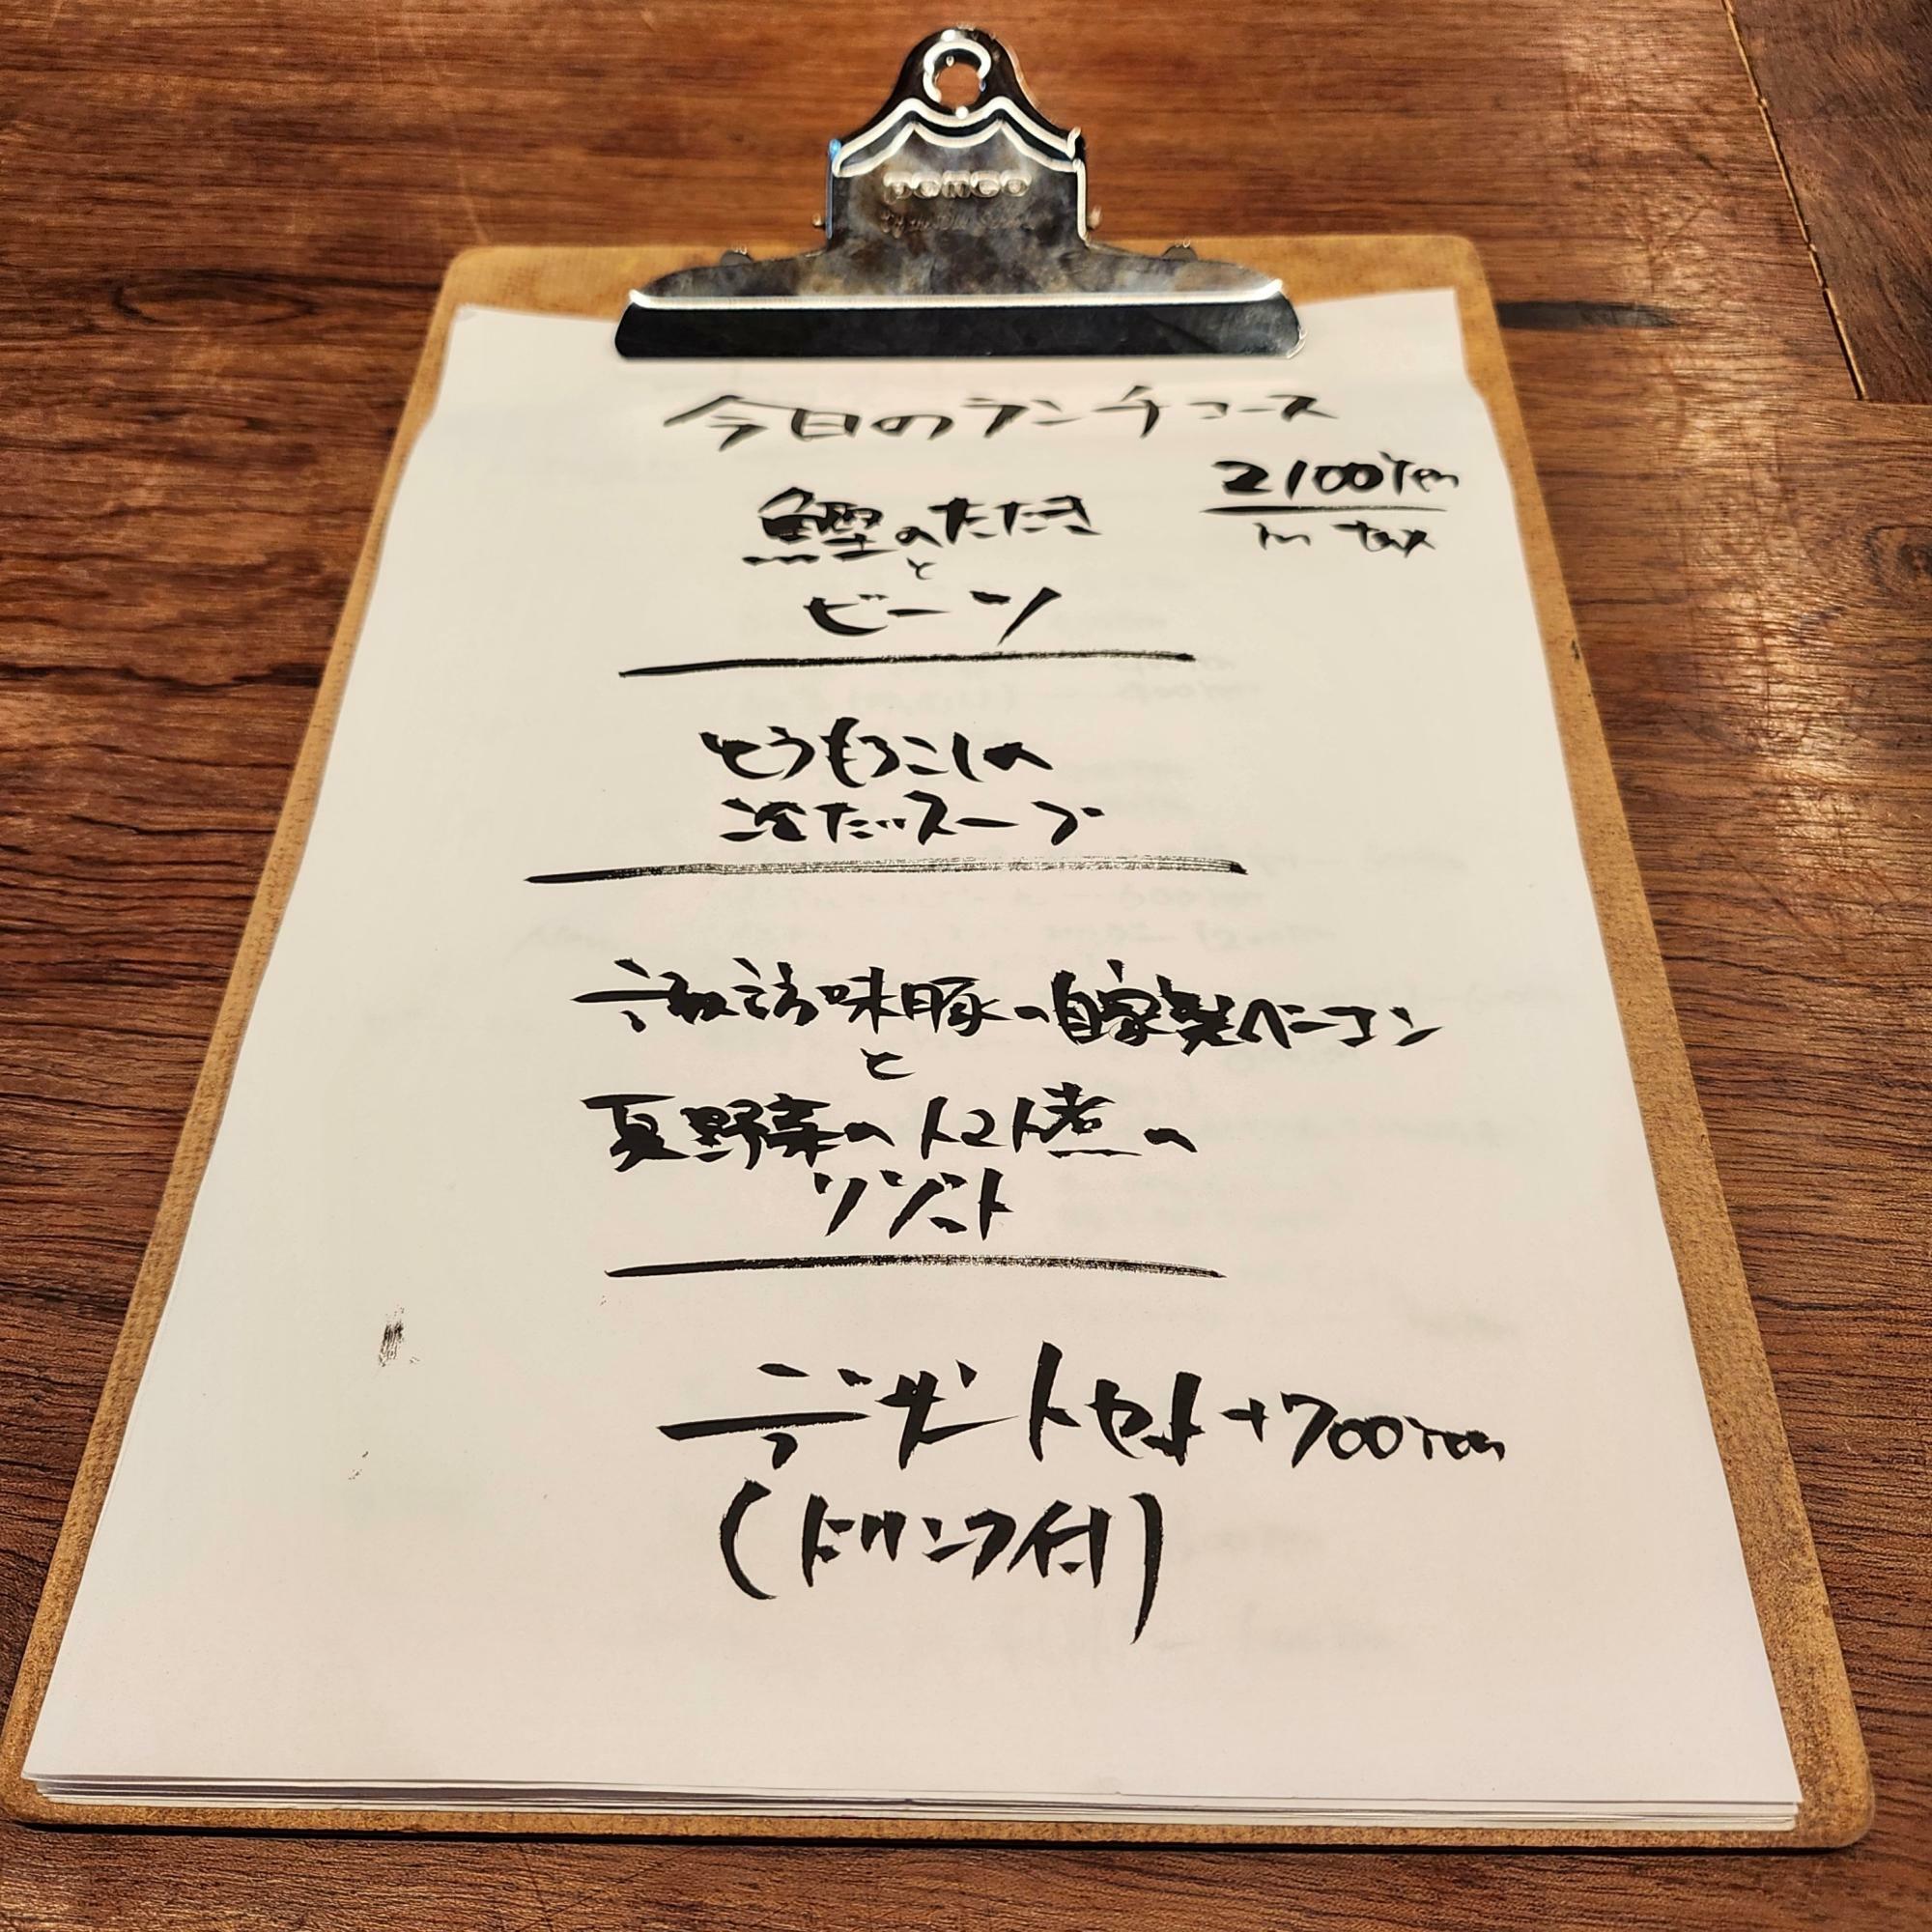 penco
今日のランチコース
2100yen
in tax
鰹のたたき
と
ビーツ
とうもろこしの
冷たいスープ
諏訪味豚の自家製ベーコン
と
夏野菜のトマト煮の
リゾット
デザートセット+700yen
(ドリンク付)